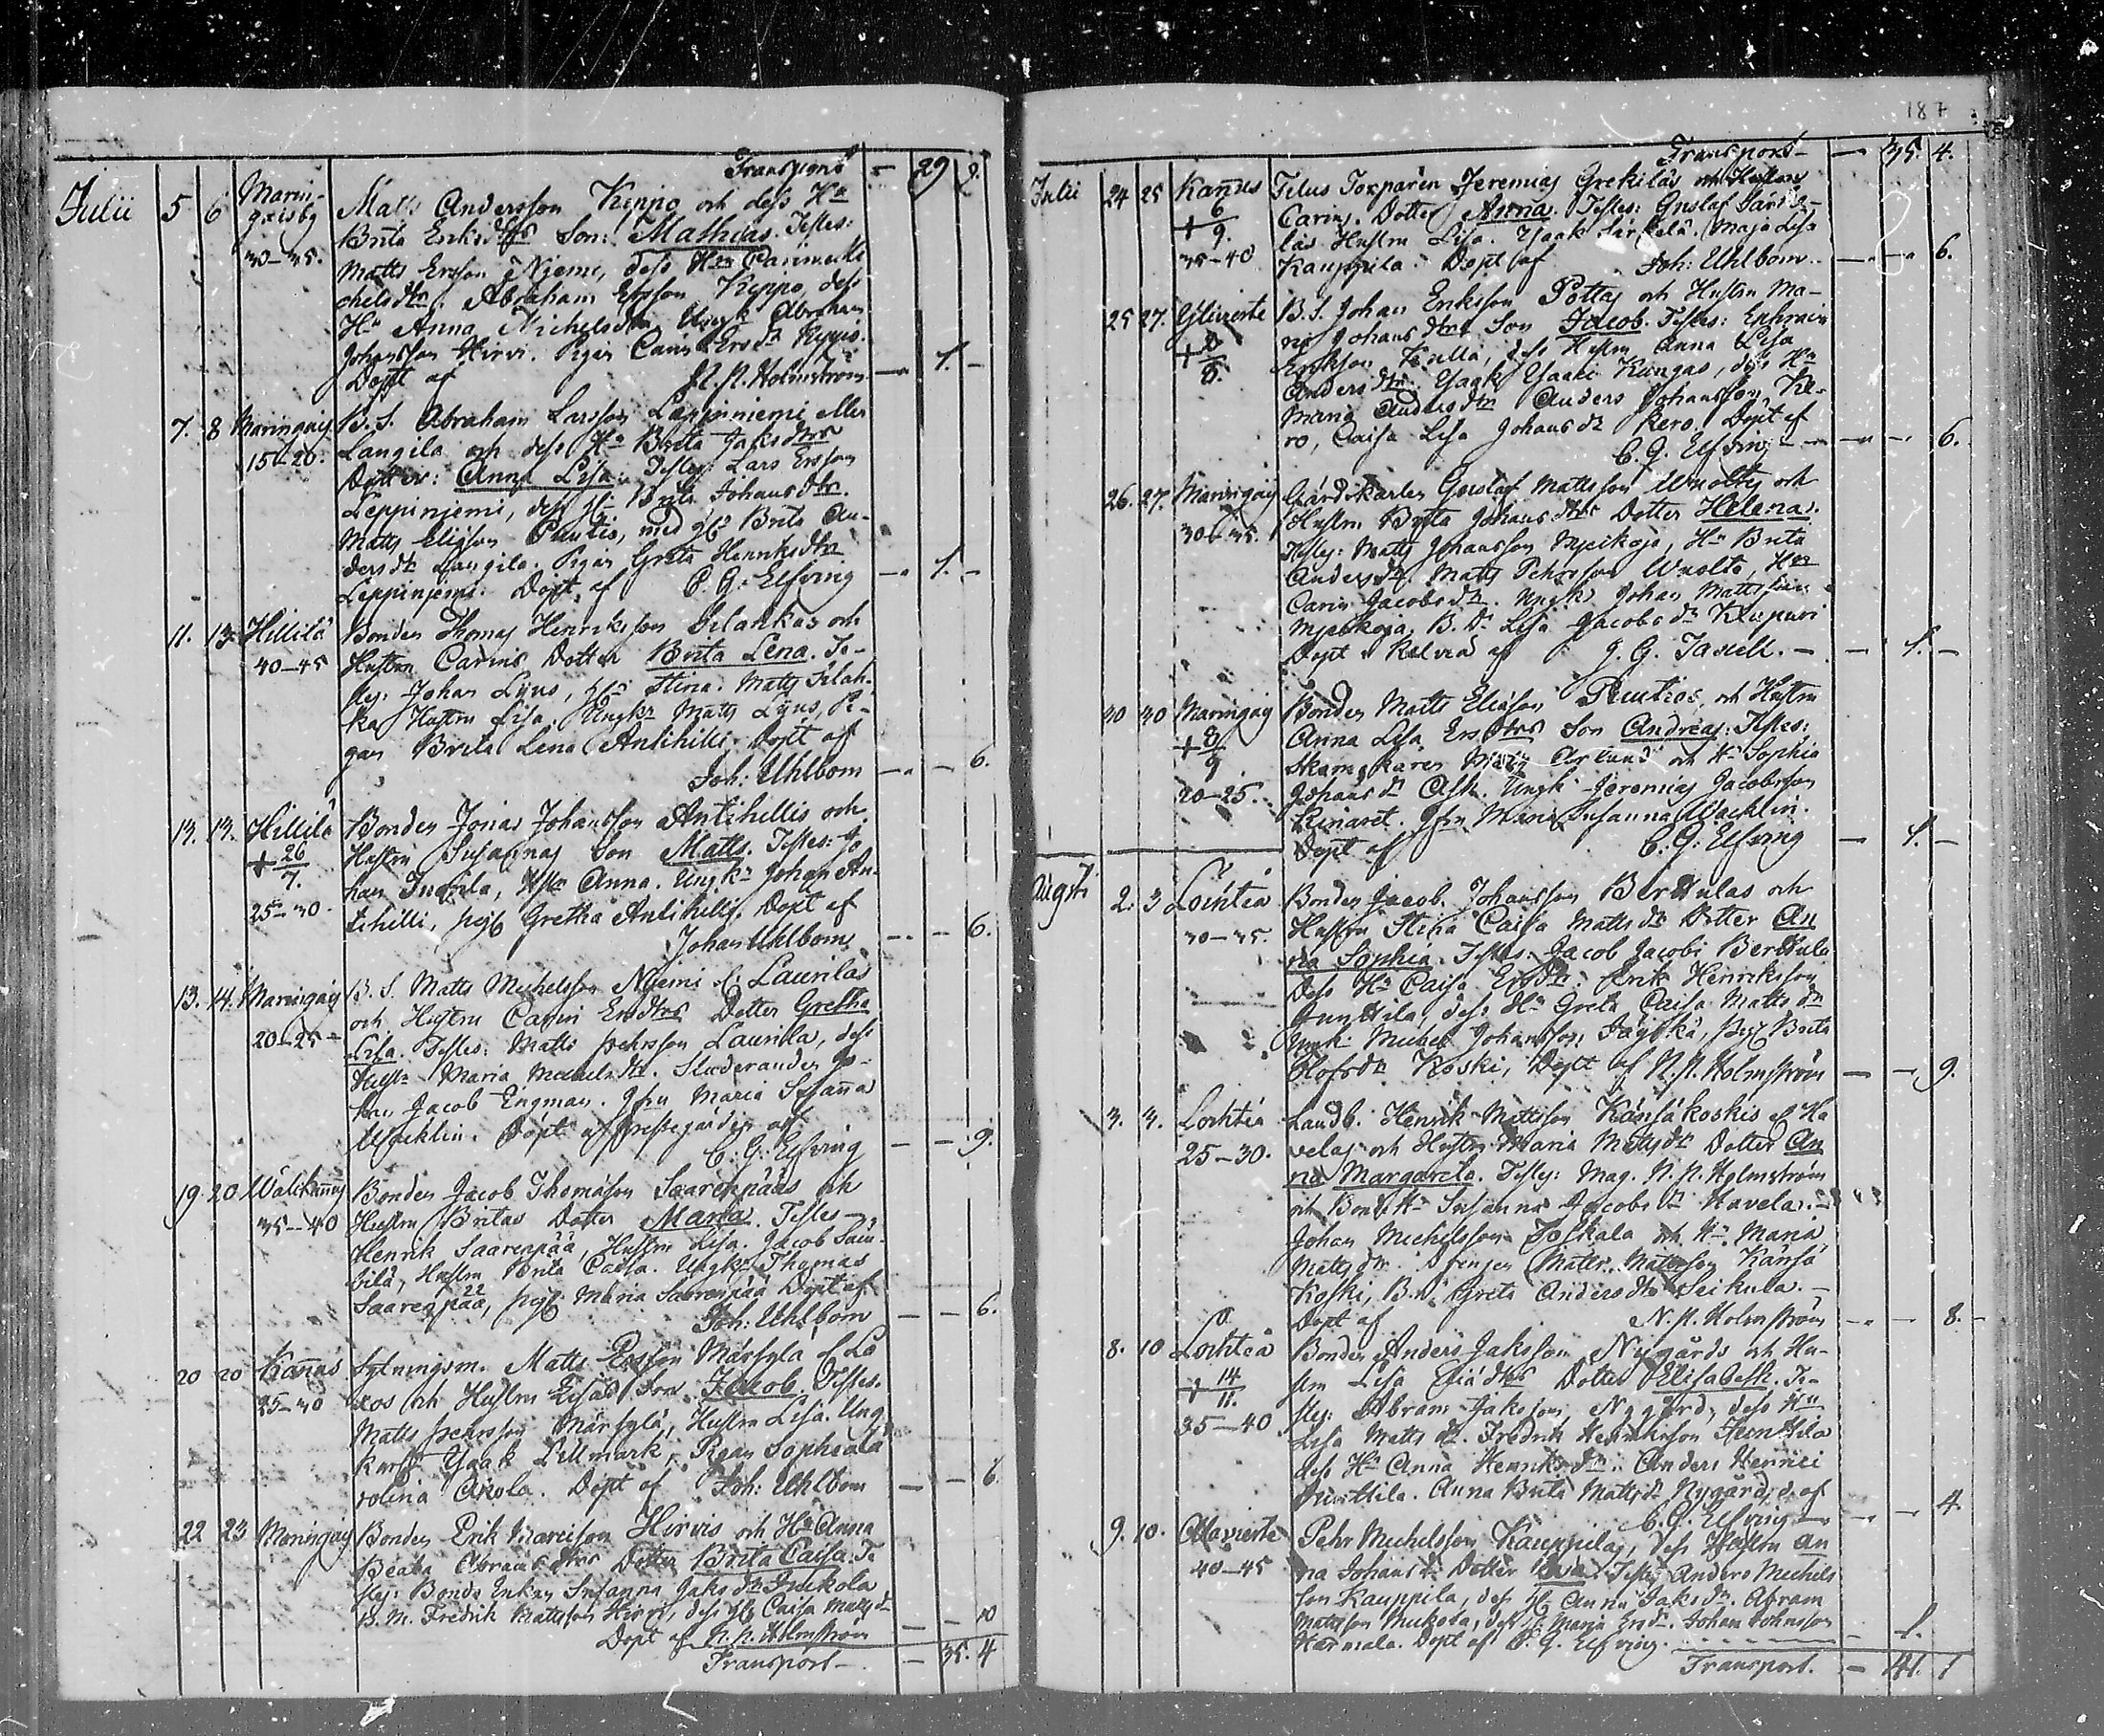 Transport - 29 9.
Julii 5 6 Marin-
gaisby Matts Andersson Keppo och dess Hu
30-35. Brita Eriksdtrs Son: Mathias. Testes:
Matts Ersson Njemi, dess Hu Carin Mi-
chelsdtr. Abraham Ersson Keppo, dess
Hu Anna Michelsdtr Ungk Abraham
Johansson Hirvi. Pigan Carin Ersdr Keppo.
Döpt af N. N. Holmström - 1. -
7. 8 Maringais B. S. Abraham Larsson Leppinniemi eller
15-20. Langila och dess Hu Brita Jaksdtrs
Dotter: Anna Lisa. Testes: Lars Ersson
Leppinjemi, dess Hu Brita Johansdtr.
Matts Eliasson Puutio, med Hu Brita An-
dersdr Langila. Pigan Greta Henriksdtr
Leppinjemi. Döpt af C. G. Elfving - 1. -
11. 13 Hillilä Bonden Thomas Henriksson Islankas och
40-45 Hustru Carins Dotter Brita Lena. Te-
stes: Johan Lyns, Hu Stina. Matts Islan-
ka Hustru Lisa. Ungkr Matts Lyns, Pi-
gan Brita Lena Antihilli. Döpt af
Joh: Uhlbom - - 6.
13. 13. Hillilä Bonden Jonas Johansson Antihillis och
+ 26/7. Hustru Susannas Son Matts. Testes: Jo
25-30. han Junnila, Hu Anna. Ungkr Johan An-
tihilli, pig Gretha Antihilli. Döpt af
Johan Uhlbom - - 6.
13. 14. Maringais B. S. Matts Michelsson Njemi el. Laurilas
20-25 och Hustru Carin Ersdtrs Dotter Gretha
Lisa. Testes: Matts Pehrsson Laurila, dess
Hustr Maria Michelsdtr. Studeranden Jo-
han Jacob Engman. Jfru Maria Susanna
Wacklin. Döpt i Prestegården af
C. G. Elfving - - 9.
19 20 Wälikannus Bonden Jacob Thomasson Saarenpääs och
35-40 Hustru Britas Dotter Maria. Testes
Henrik Saarenpää, Hustru Lisa. Jacob
Hustru Brita Caisa. Ungkr Thomas
Saarenpää, pig: Maria Saarenpää Döpt af
Joh: Uhlbom - - 6.
20 20 Kannus Sytningsm. Matts Ersson Märsylä
25-30 och Hustru Lisas Son Jakob. Testes.
Matts Pehrsson Märsylä, Hustru Lisa. Ung
karln Isaak Lillmark, Pigan Sophia Ca
rolina Akola. Döpt af Joh: Uhlbom - - 6.
22 23 Maringais Bonden Erik Hirvis och Hu Anna
Beata Abramsdtrs Dotter Brita Caisa. Te
stes: Bonds Enkan Susanna Jaksdr Juckola
B. M. Fredrik Mattsson Hirvi, dess Hu Caisa Mattsdr
Döpt af N. N. Holmström - - 10
Transport - 35. 4
187
Transport - 35. 4.
Julii 24 25 Kannus Torparen Jeremias Grekiläs och Hustru
+ 6/9. Carins. Dotter Anna. Testes: Gustaf Särke-
35-40 läs Hustru Lisa. Isaak Särkelä. Maja Lisa
Kauppila. Döpt af Joh: Uhlbom - - 6.
25 27. Ylivieste B. S. Johan Eriksson Pottas och Hustru Ma-
ria Johansdtrs Son Jacob. Testes: Ephraim
Eriksson dess Hustru Anna Lisa
Andersdtr. Isaak Isaaki Kangas, dess Hu
Maria Andersdtr Anders Johansson Ke-
ro, Caisa Lisa Johansdr Kero. Döpt af
C. G. Elfving - - 6.
26. 27. Maringais Gårdskarlen Gustaf Mattsson Wuoltis och
30-35. Hustru Brita Johansdtrs Dotter Helena.
Testes: Matts Johansson Myllkoja, Hu Brita
Andersdr. Matts Pehrsson Wuolto, Hu
Carin Jacobsdr. Ungkr Johan Mattsson
B. Dr Lisa Jacobsdr
Döpt i Kelviå af J. G. - 1. -
30 30 Maringais Bonden Matts Eliasson Puutios, och Hustru
+ 8/9 Anna Lisa Ersdtrs Son Andreas. Testes:
20-25. Skomakaren Aslund och Hu Sophia
Johansdr Ask. Ungk: Jeremias Jacobsson
Jfru Maria Susanna Wacklin.
Döpt af C. G. Elfving - 1. -
Augsti 2. 3 Lochteå Bonden Jacob Johansson Berttulas och
30-35. Hustru Stina Caisa Mattsdr Dotter An
na Sophia. Testes: Jacob Jacobi Berttula
Dess Hu Caisa Ersdtr. Erik Henriksson
Junttila, dess Hu Greta Caisa Mattsdr
Ungk: Michel Johansson pig Brita
Olofsdr Koski, Döpt af N. N. Holmström - - 9.
3. 3. Lochteå Landb. Henrik Mattsson Känsäkoskis el Ha
25-30. velas och Hustru Maria Mattsdr Dotter An
na Margareta. Testes: Mag. N. N. Holmström
och Hu Susanna Jacobsdr Havela.
Johan Michelsson Joskala och Hu Maria
Mattsdr. Drengen Matts Mattsson Känsä
koski, B. D. Greta Andersdtr Seikula.
Döpt af N. N. Holmström - - 8.
8. 10 Lochteå Bonden Anders Jaksson Nygårds och Hu-
+ 14/11. stru Lisa dtrs Dotter Elisabeth. Te-
35-40 stes: Abram Jaksson Nygård, dess Hu
Lisa Mattsdr. Fredrik Henriksson Junttila
dess Hu Anna Henriksdtr. Anders Henrici
Junttila. Anna Brita Mattsdr Nygård, d. af
C. G. Elfving - - 4
9. 10. Alavieste Pehr Michelsson Kauppilas, dess Hustru An
40-45 na Johansdr Dotter Testes Anders Michels
son Kauppila, dess Hu Anna Jaksdr. Abram
Mattsson dess Hu Maria Ersdr. Johan Johansson
Döpt af C. G. Elfving. - 1.
Transport. - 41. 1